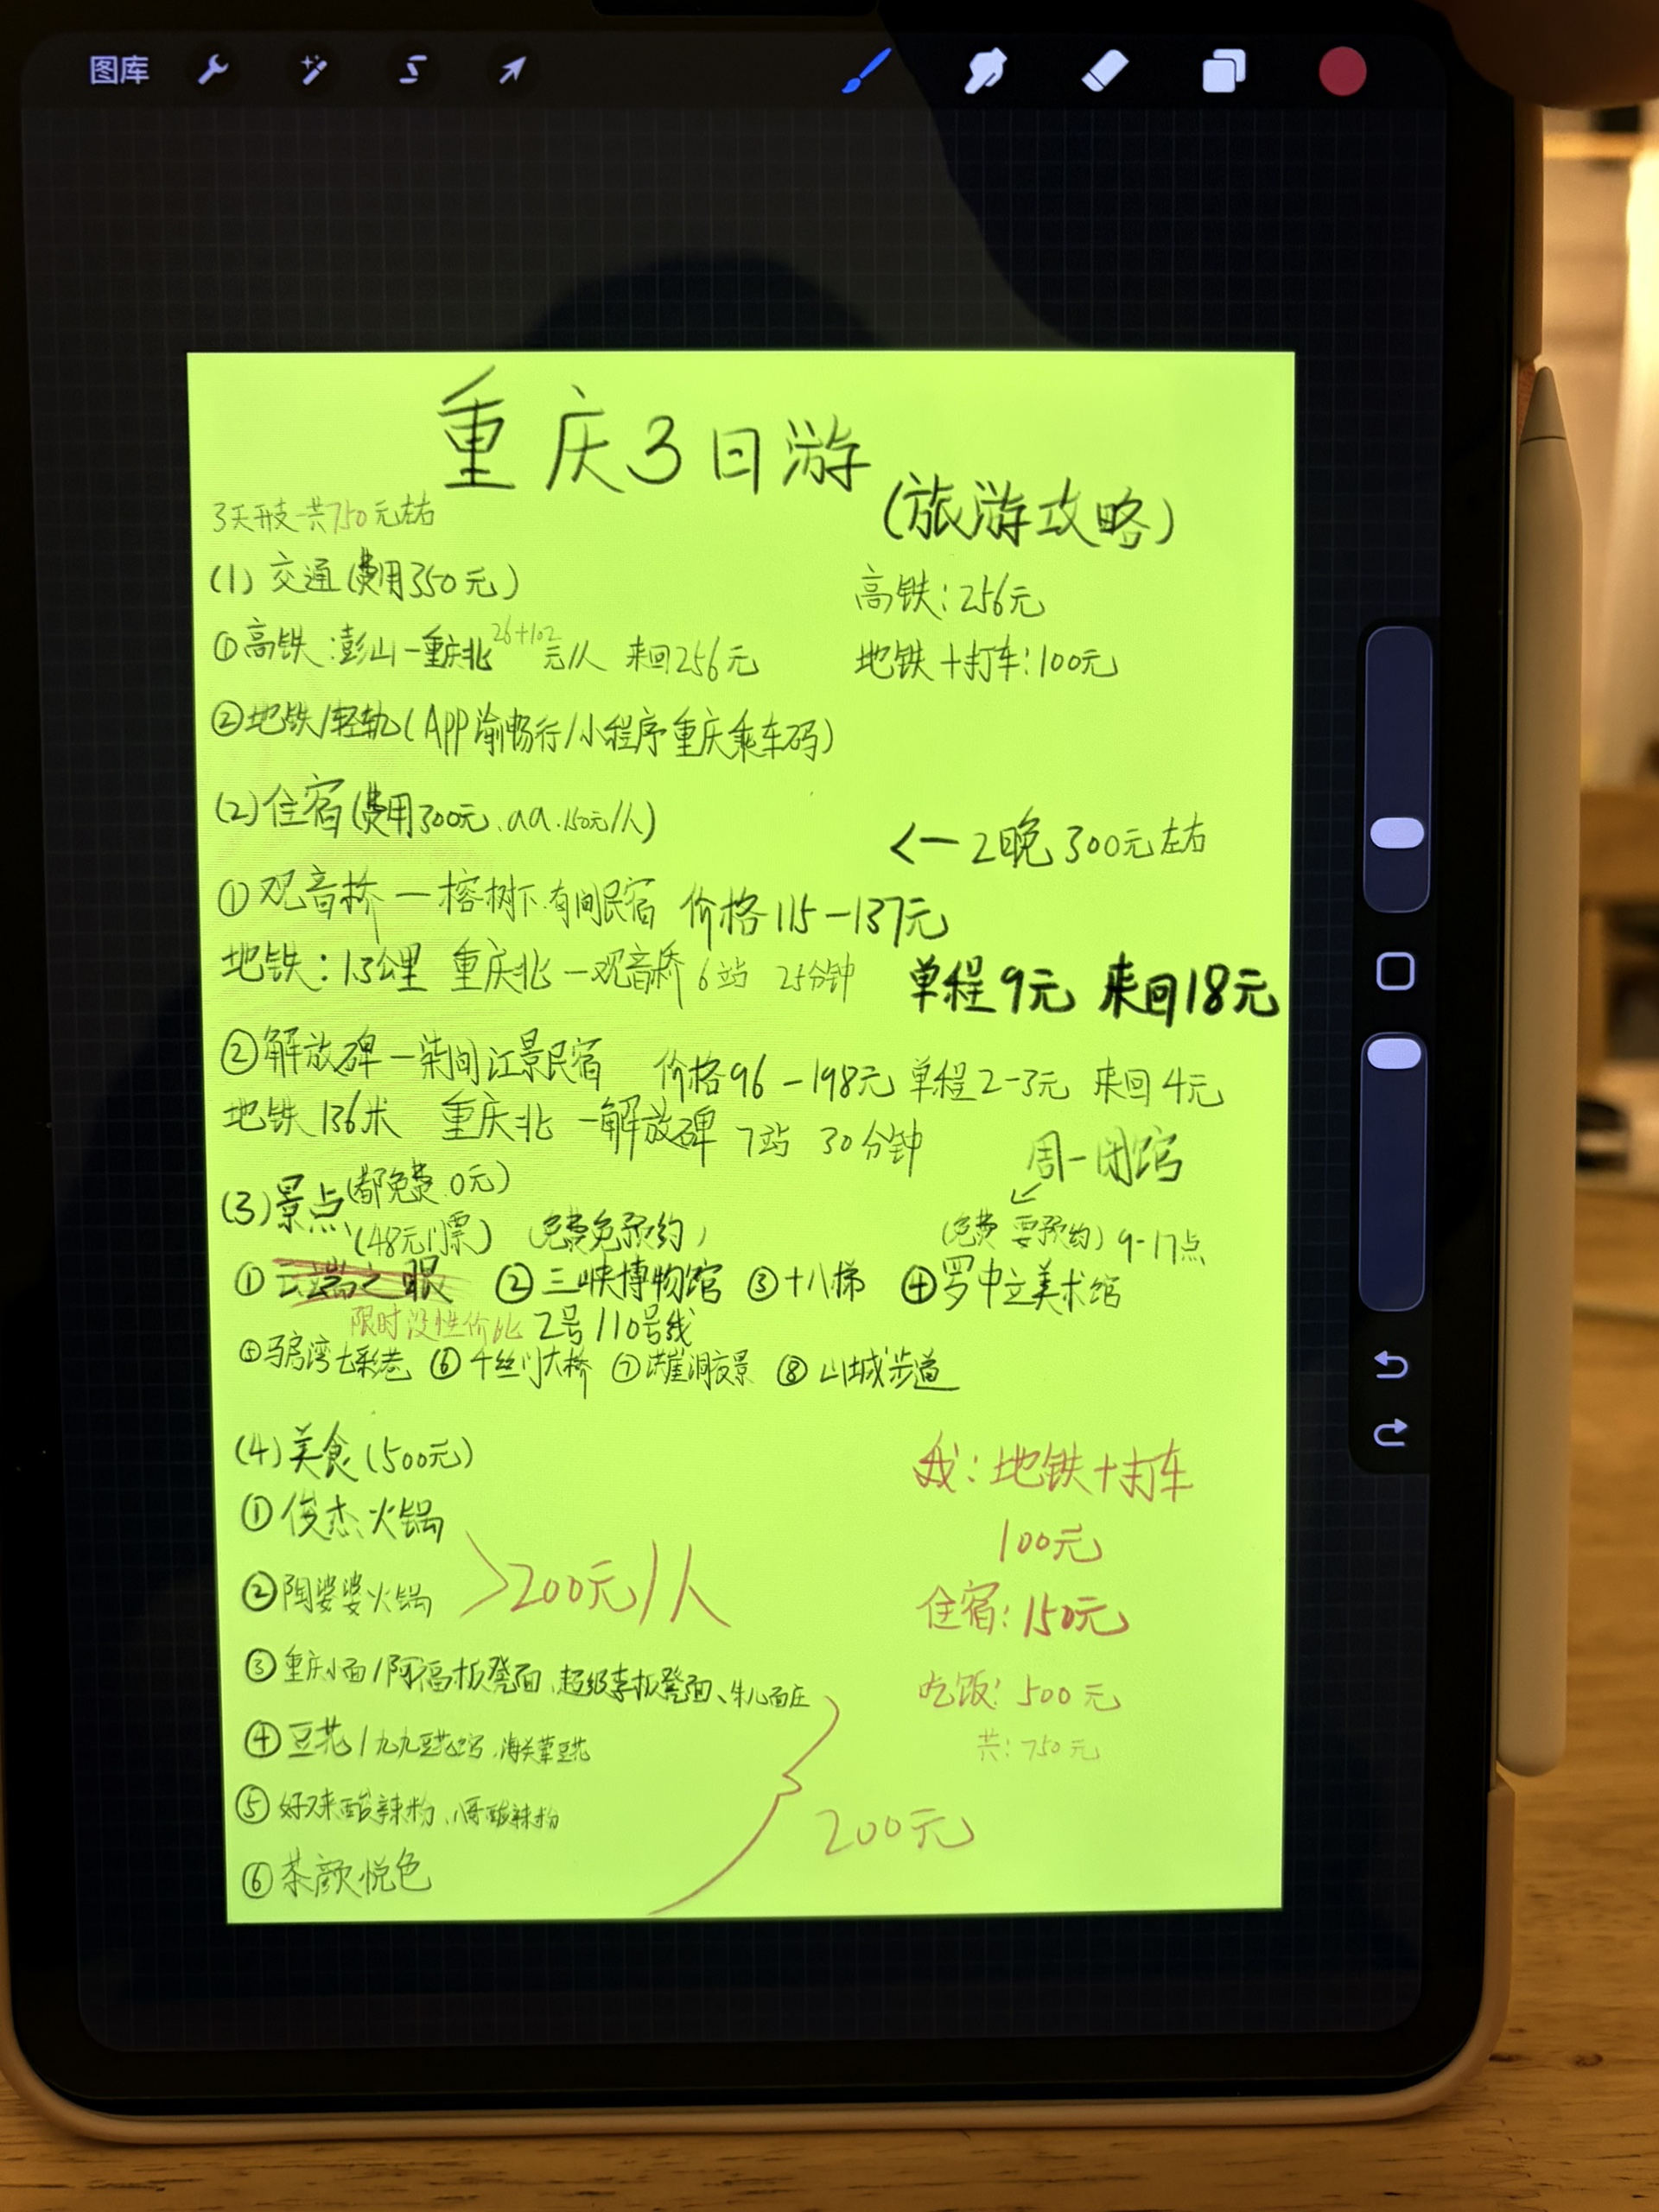 图库
重庆3日游
(旅游攻略)
3天开支共750元左右
(1) 交通(费用350元)
高铁:256元
①高铁:彭山—重庆北 26+102元/人 来回256元
地铁+打车:100元
②地铁/轻轨(APP渝畅行/小程序重庆乘车码)
(2)住宿(费用300元、aa.150元/人)
←2晚300元左右
①观音桥—榕树下.有间民宿 价格115-137元
地铁:1.3公里 重庆北—观音桥 6站 25分钟 单程9元 来回18元
②解放碑—柒间江景民宿 价格96-198元 单程2-3元 来回4元
地铁136米 重庆北—解放碑 7站 30分钟
周一闭馆
(3)景点(都免费.0元)
(48元门票) (免费免预约) (免费 要预约) 9-17点
①云端之眼 ②三峡博物馆 ③十八梯 ④罗中立美术馆
限时没性价比 2号/10号线
⑤马房湾七彩巷 ⑥千丝门大桥 ⑦洪崖洞夜景 ⑧山城步道
(4)美食(500元)
①俊杰火锅
②陶婆婆火锅
>200元/人
③重庆小面/阿福板凳面、超级李板凳面、朱儿面庄
④豆花/九九豆花馆、海关菜豆花
⑤好又来酸辣粉、酸辣粉
⑥茶颜悦色
200元
我:地铁+打车
100元
住宿:150元
吃饭:500元
共:750元